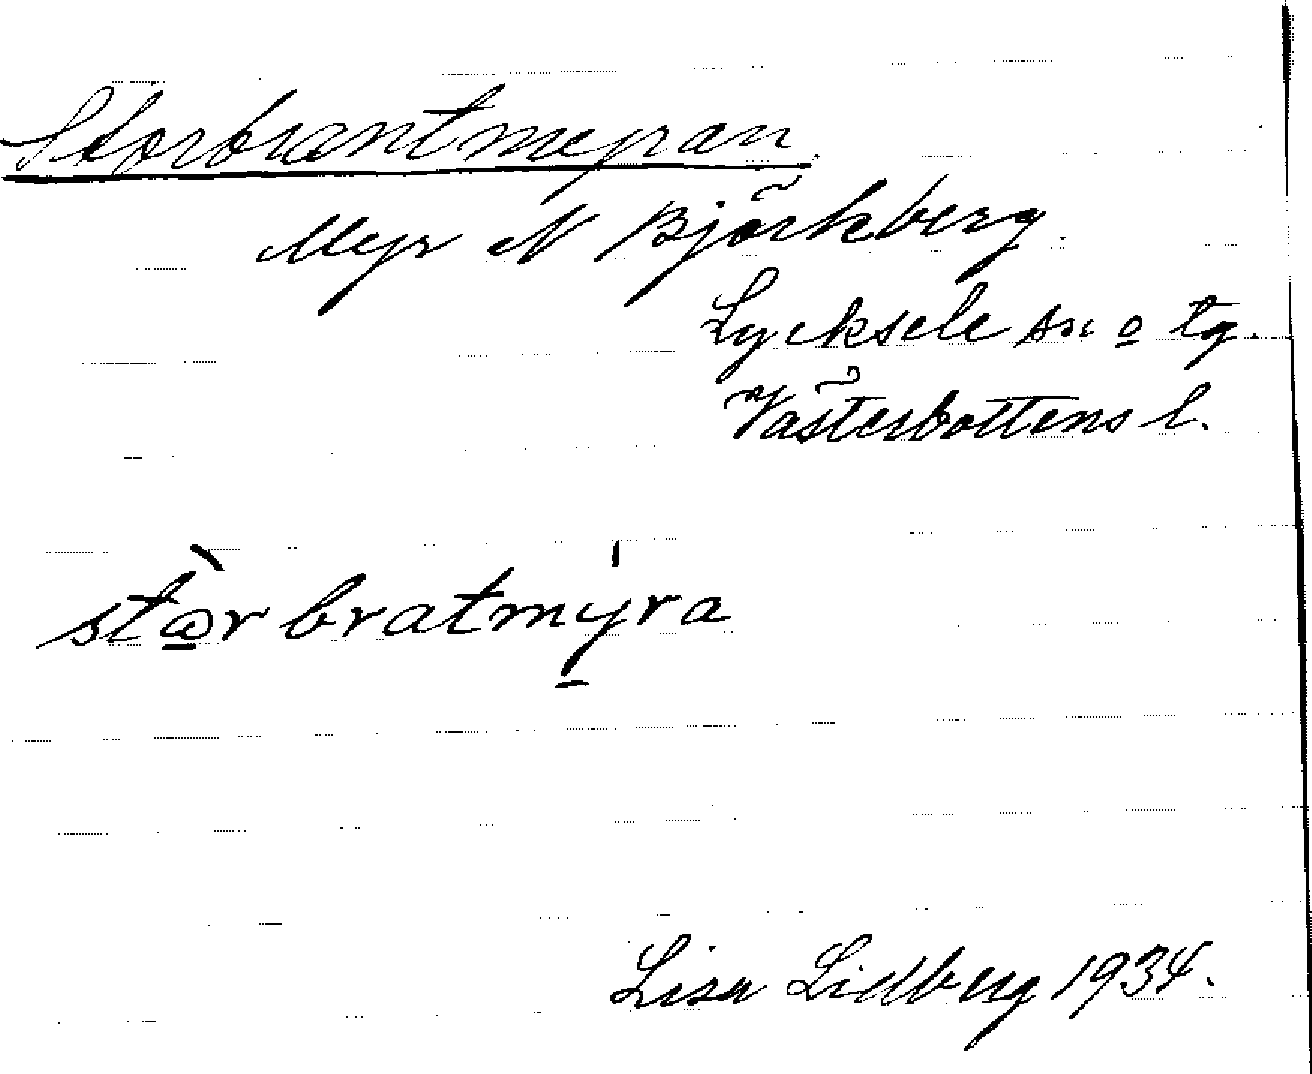 Storbrantmyran
Myr N Björkberg.
Lycksele sn o tg.
Västerbottens l.
stòrbratmýra
Lisa Lidberg 1934.